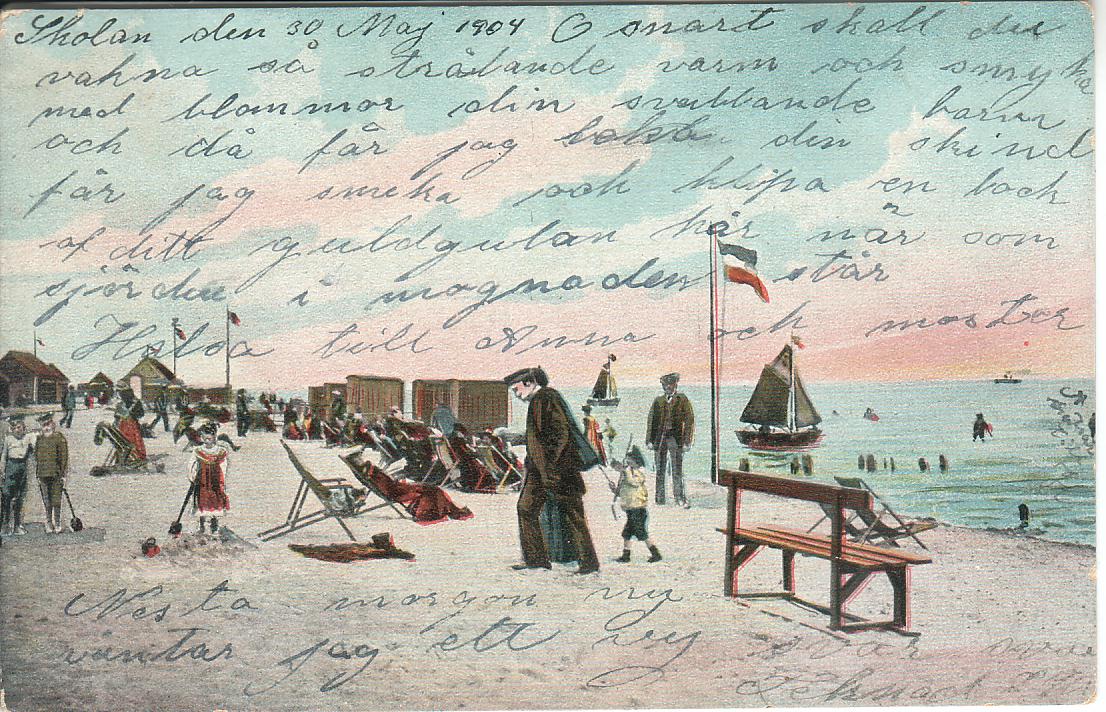 Skolan den 30 Maj 1904 O snart skall du
vakna så strålande varm och smyka
med blommor din svallande barm
och då får jag din skind
får jag smeka och klipa en lock
af ditt guldgulan hår när som
sjörden i mognaden står
Helsa till Anna och mostor
Nesta morgon ny
väntar jag ett vy svar